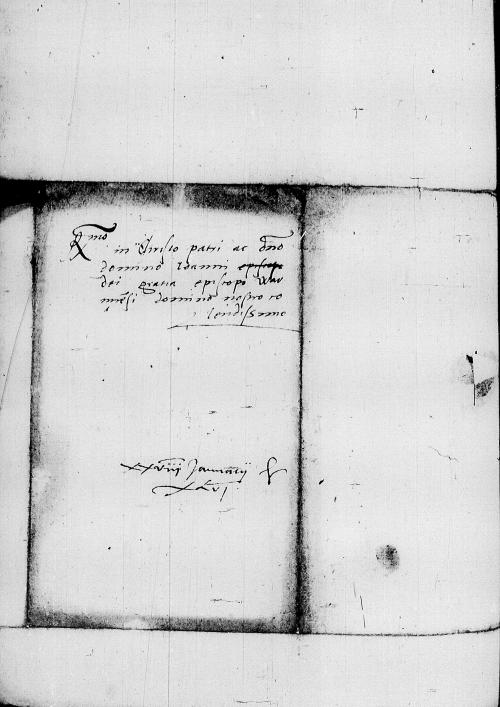 Rmo
in Christo patri ac dno
domino Ioanni episcopo
dei gratia episcopo War
miesi domino nostro co
lendissimo
xxviii Januarii
xlvi